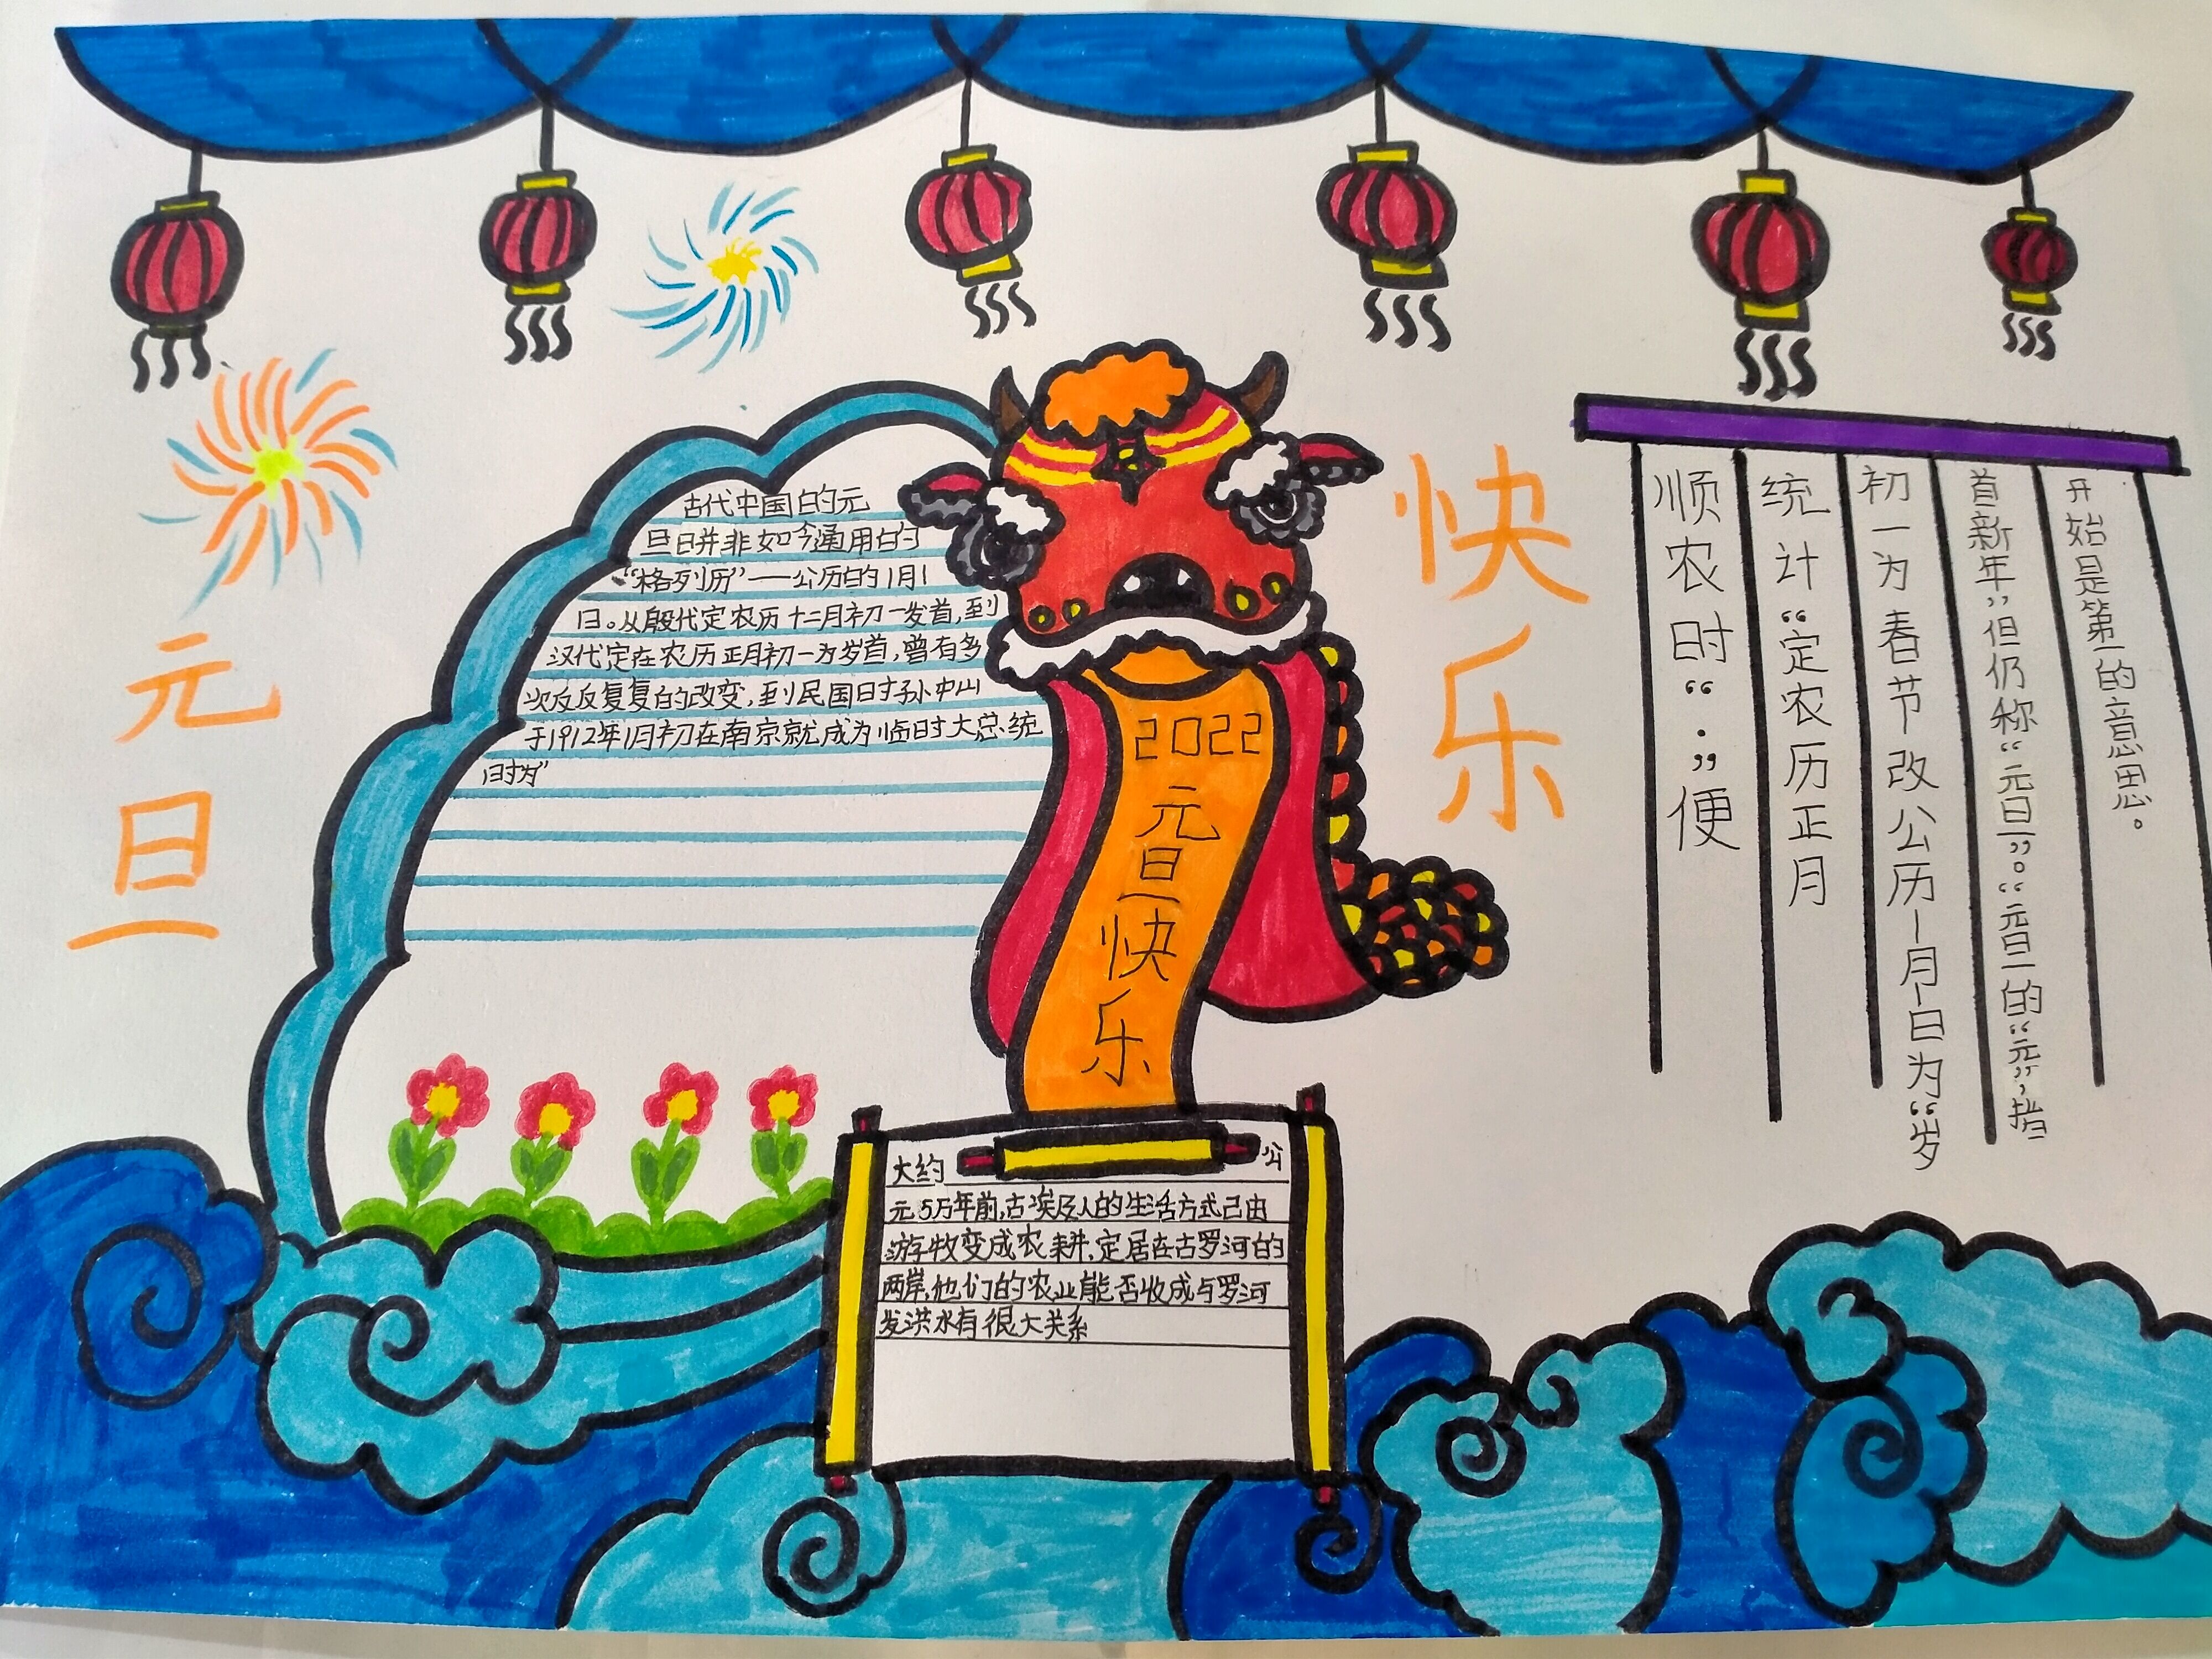 元旦
快乐
古代中国的元
旦日并非如今通用的
“格列历”——公历的1月1
日。从殷代定农历十二月初一岁首,到
汉代定在农历正月初一为岁首,曾有多
次反反复复的改变,到民国时孙中山
于1912年1月初在南京就成为临时大总统
时为”
2022
元旦快乐
大约 公
元5万年前,古埃及人的生活方式已由
游牧变成农耕,定居在古罗河的
两岸,他们的农业能否收成与罗河
发洪水有很大关系
顺农时“.”便
统计“定农历正月
初一为春节改公历一月一日为“岁
首新年”但仍称“元旦”。“元旦的“元”,指
开始是第一的意思。